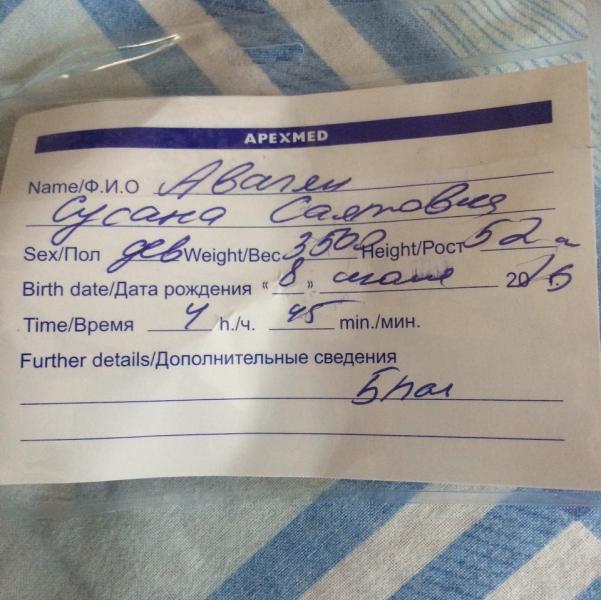 APEXMED
Name/Ф.И.О Авагян
Сусана Саятовна
Sex/Пол дев Weight/Вес 3500 Height/Рост 52
Birth date/Дата рождения "8" июля 2015
Time/Время 4 h./ч. 45 min./мин.
Further details/Дополнительные сведения